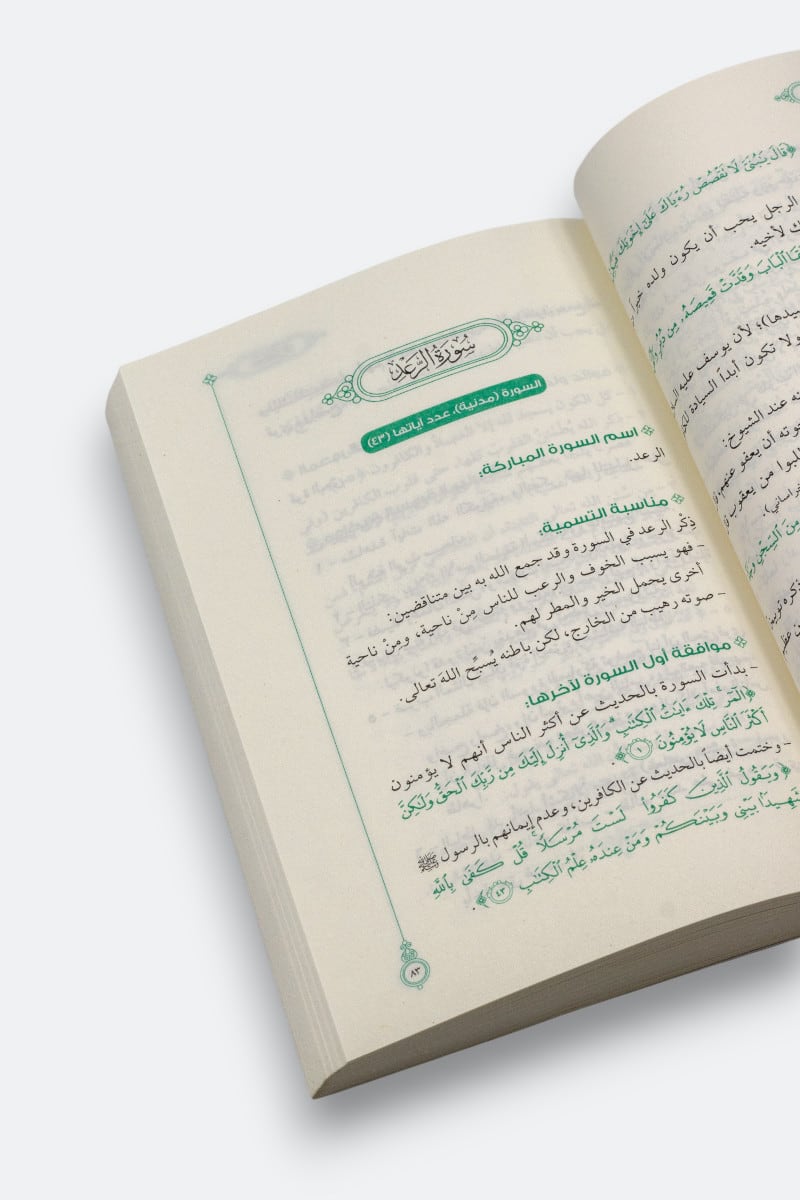 ﴿قَالَ يَٰبُنَيَّ لَا تَقْصُصْ رُءْيَاكَ عَلَىٰٓ إِخْوَتِكَ
الرجل يحب أن يكون ولده خيراً
لأخيه.
ٱلْبَابَ وَقَدَّتْ قَمِيصَهُۥ مِن دُبُرٍ
سيدها)؛ لأن يوسف عليه
ولا تكون أبداً السيادة
عند الشيوخ:
أن يعفو عنهم،
من يعقوب
مِنَ ٱلسِّجْنِ
سُورَةُ الرَّعْدِ
السورة (مدنية)، عدد آياتها (٤٣)
اسم السورة المباركة:
الرعد.
مناسبة التسمية:
ذِكْر الرعد في السورة وقد جمع الله به بين متناقضين:
- فهو يسبب الخوف والرعب للناس مِنْ ناحية، ومِنْ ناحية
أخرى يحمل الخير والمطر لهم.
- صوته رهيب من الخارج، لكن باطنه يُسبِّح اللهَ تعالى.
موافقة أول السورة لآخرها:
- بدأت السورة بالحديث عن أكثر الناس أنهم لا يؤمنون
﴿الٓمٓر ۚ تِلْكَ ءَايَٰتُ ٱلْكِتَٰبِ ۗ وَٱلَّذِىٓ أُنزِلَ إِلَيْكَ مِن رَّبِّكَ ٱلْحَقُّ وَلَٰكِنَّ
أَكْثَرَ ٱلنَّاسِ لَا يُؤْمِنُونَ ١﴾.
- وختمت أيضاً بالحديث عن الكافرين، وعدم إيمانهم بالرسول ﷺ
﴿وَيَقُولُ ٱلَّذِينَ كَفَرُوا۟ لَسْتَ مُرْسَلًا ۚ قُلْ كَفَىٰ بِٱللَّهِ
شَهِيدًۢا بَيْنِى وَبَيْنَكُمْ وَمَنْ عِندَهُۥ عِلْمُ ٱلْكِتَٰبِ ٤٣﴾.
٨٣